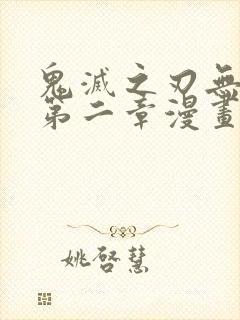 鬼滅之刃無
第二章漫畫
姚啓慧